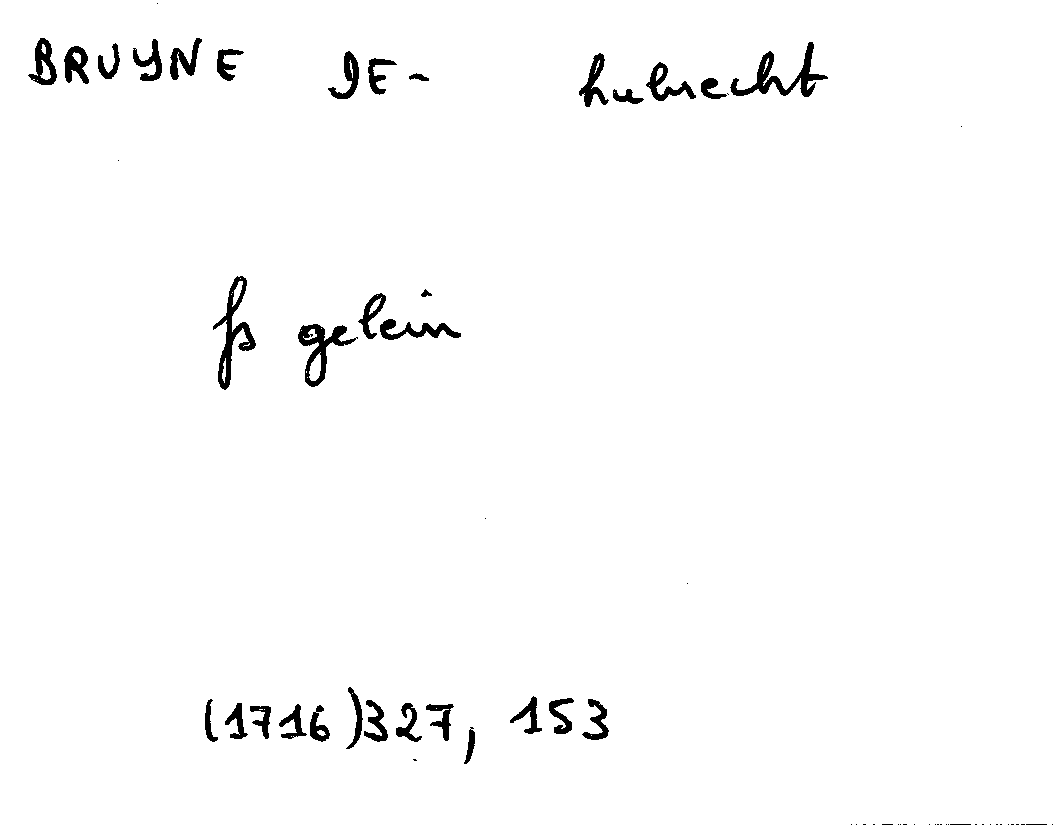 BRUYNE DE- hubrecht
fs gelein
(1716)327, 153